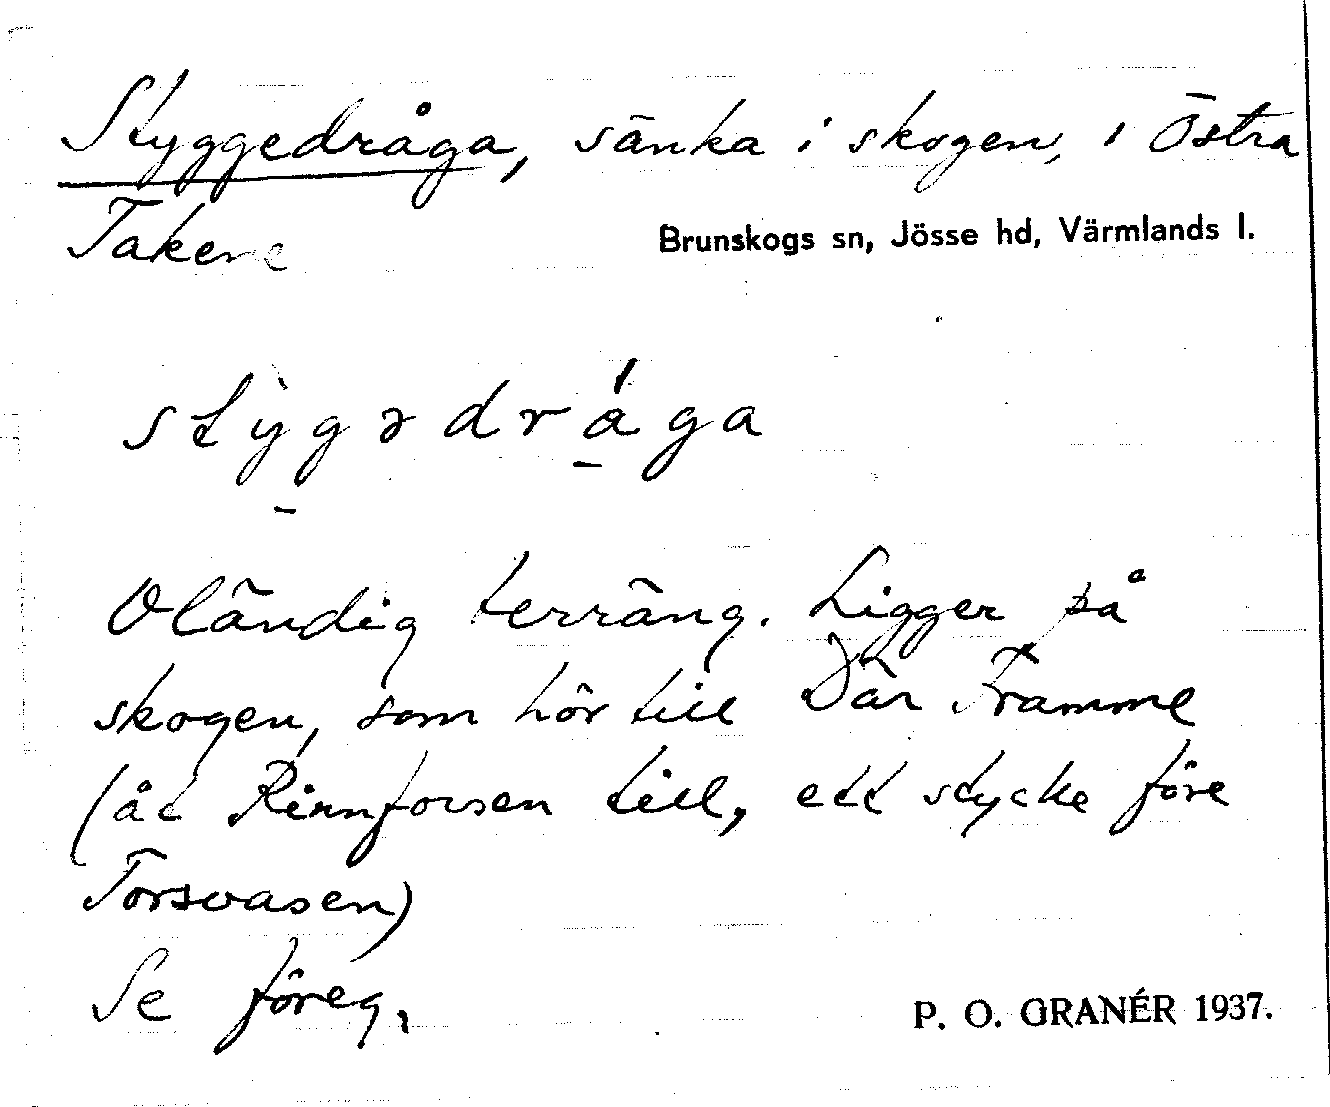 Styggedråga, sänka i skogen, i Östra
Takene
Brunskogs sn, Jösse hd, Värmlands l.
stỳgədrága
Oländig terräng. Ligger på
skogen, som hör till Där Framme
(åt Rinnforsen till, ett stycke före
Torsvasen)
Se föreg.
P. O. GRANÉR 1937.